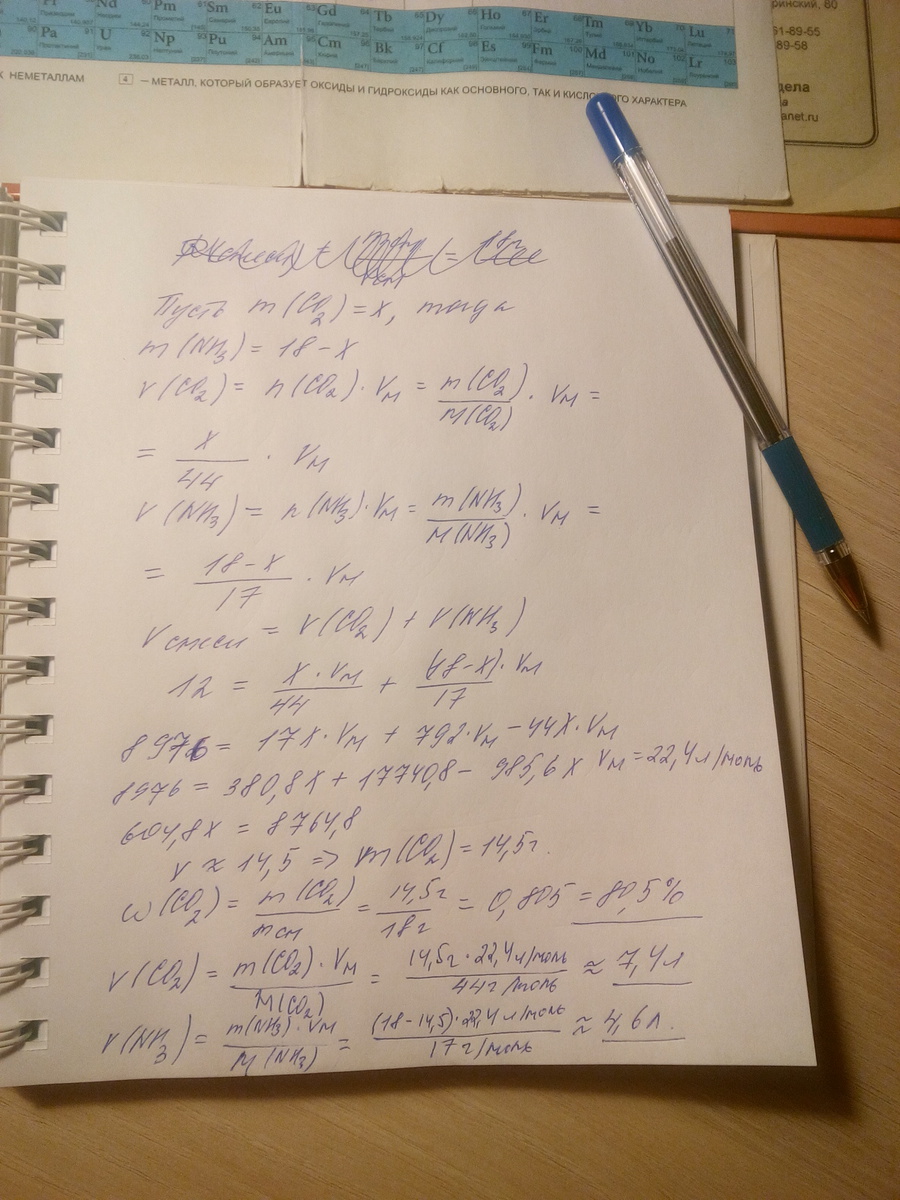 Pm Sm Eu Gd Tb Dy Ho Er Tm Yb Lu
Pa U Np Pu Am Cm Bk Cf Es Fm Md No Lr
НЕМЕТАЛЛАМ 4 — МЕТАЛЛ, КОТОРЫЙ ОБРАЗУЕТ ОКСИДЫ И ГИДРОКСИДЫ КАК ОСНОВНОГО, ТАК И ХАРАКТЕРА
80
51-89-55
89-58
Пусть m(CO₂) = x, тогда
m(NH₃) = 18 - x
V(CO₂) = n(CO₂) · Vм = m(CO₂)/M(CO₂) · Vм =
= x/44 · Vм
V(NH₃) = n(NH₃) · Vм = m(NH₃)/M(NH₃) · Vм =
= 18-x/17 · Vм
V смеси = V(CO₂) + V(NH₃)
12 = x · Vм/44 + (18-x) · Vм/17
8976 = 17x · Vм + 792 · Vм - 44x · Vм
8976 = 380,8x + 17740,8 - 985,6x Vм = 22,4л/моль
604,8x = 8764,8
x ≈ 14,5 => m(CO₂) = 14,5г.
ω(CO₂) = m(CO₂)/mсм = 14,5г/18г = 0,805 = 80,5%
V(CO₂) = m(CO₂) · Vм/M(CO₂) = 14,5г · 22,4л/моль/44г/моль ≈ 7,4л
V(NH₃) = m(NH₃) · Vм/M(NH₃) = (18-14,5) · 22,4л/моль/17г/моль ≈ 4,6л.